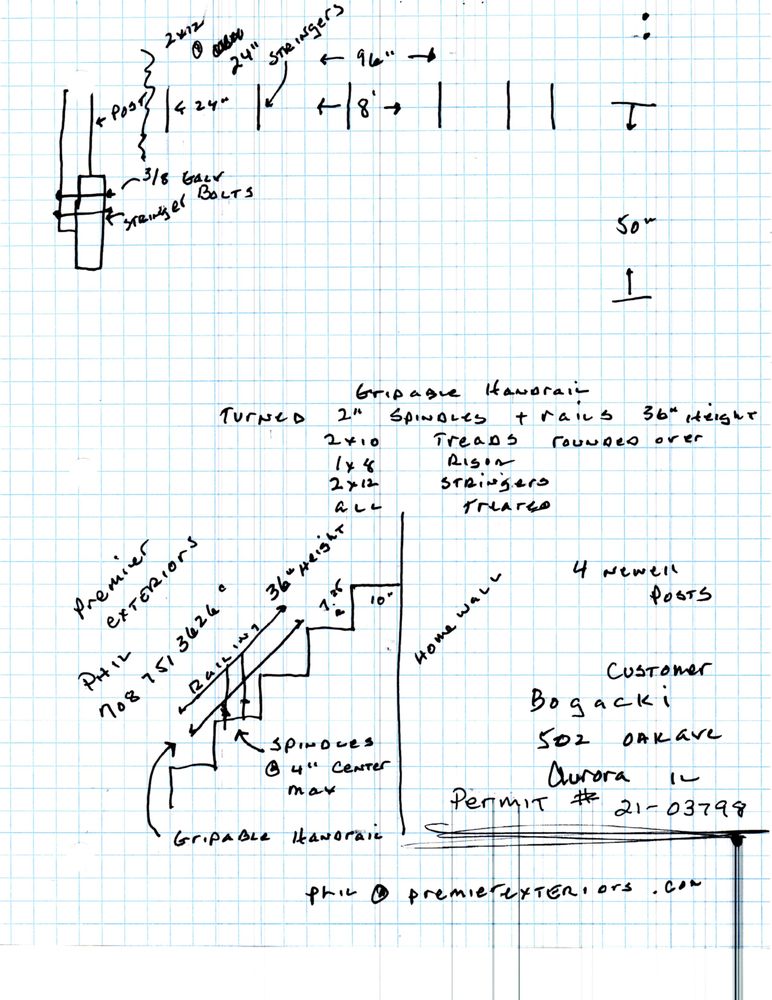 2x12
@
24" STRINGERS
← 96" →
← POST
← 24"
← 8' →
3/8 GALV
STRINGER BOLTS
50"
GRIPABLE HANDRAIL
TURNED 2" SPINDLES + rails 36" Height
2x10 TREADS rounded over
1x8 RISOR
2x12 STRINGERS
ALL TREATED
PREMIER
EXTERIORS
PHIL
708 751 3626
36" Height
RAILING
10"
HOME WALL
4 Newell
POSTS
SPINDLES
@ 4" CENTER
MAX
GRIPABLE HANDRAIL
CUSTOMER
Bogacki
502 OAK AVE
Aurora IL
PERMIT # 21-03798
PHIL @ PREMIEREXTERIORS.COM